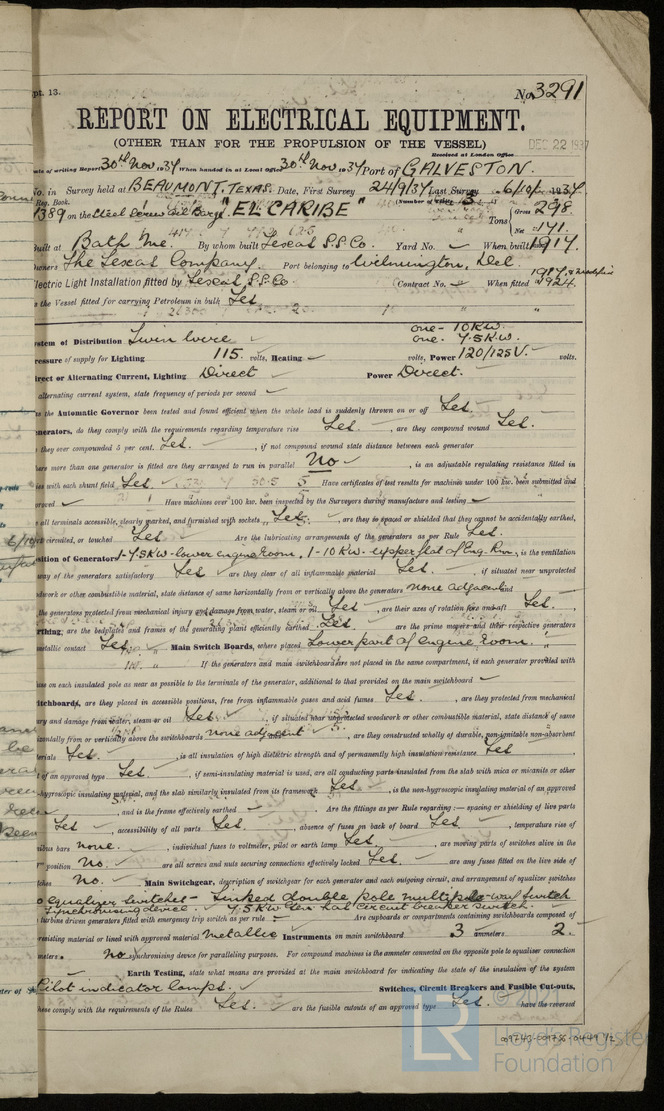 pt. 13.
No. 3291
REPORT ON ELECTRICAL EQUIPMENT.
(OTHER THAN FOR THE PROPULSION OF THE VESSEL)
DEC 22 1937
Received at London Office
of writing Report 30th Nov. 1937 When handed in at Local Office 30th Nov. 1937 Port of GALVESTON.
No. in Survey held at BEAUMONT, TEXAS. Date, First Survey 24/9/37 Last Survey 6/10/ 1937
Reg. Book. (Number of Visits 3
1389 on the Steel Screw Oil Barge "EL CARIBE" Tons Gross 298
Net 171.
Built at Bath Me. By whom built Texas S.S. Co. Yard No. When built 1917.
Owners The Texas Company. Port belonging to Wilmington, Del.
Electric Light Installation fitted by Texas S.S. Co. Contract No. When fitted 1917 & 1924.
the Vessel fitted for carrying Petroleum in bulk Yes.
one - 10 K.W.
one - 7.5 K.W.
System of Distribution Twin wire
Pressure of supply for Lighting 115 volts, Heating volts, Power 120/125 V. volts.
Direct or Alternating Current, Lighting Direct Power Direct.
alternating current system, state frequency of periods per second
the Automatic Governor been tested and found efficient when the whole load is suddenly thrown on or off Yes.
enerators, do they comply with the requirements regarding temperature rise Yes. , are they compound wound Yes.
they over compounded 5 per cent. Yes. , if not compound wound state distance between each generator
here more than one generator is fitted are they arranged to run in parallel No , is an adjustable regulating resistance fitted in
ies with each shunt field Yes. Have certificates of test results for machines under 100 kw. been submitted and
proved Have machines over 100 kw. been inspected by the Surveyors during manufacture and testing
all terminals accessible, clearly marked, and furnished with sockets Yes. , are they so spaced or shielded that they cannot be accidentally earthed,
circuited, or touched Yes Are the lubricating arrangements of the generators as per Rule Yes.
osition of Generators 1-7.5KW-lower engine room, 1-10KW-upper flat of Eng. Rm., is the ventilation
way of the generators satisfactory Yes are they clear of all inflammable material Yes. , if situated near unprotected
odwork or other combustible material, state distance of same horizontally from or vertically above the generators none adjacent and
the generators protected from mechanical injury and damage from water, steam or oil Yes , are their axes of rotation fore and aft Yes.
rthing, are the bedplates and frames of the generating plant efficiently earthed Yes are the prime movers and their respective generators
metallic contact Yes Main Switch Boards, where placed Lower part of engine room.
If the generators and main switchboard are not placed in the same compartment, is each generator provided with
use on each insulated pole as near as possible to the terminals of the generator, additional to that provided on the main switchboard
itchboards, are they placed in accessible positions, free from inflammable gases and acid fumes Yes. , are they protected from mechanical
ury and damage from water, steam or oil Yes , if situated near unprotected woodwork or other combustible material, state distance of same
zontally from or vertically above the switchboards none adjacent , are they constructed wholly of durable, non-ignitable non-absorbent
terials Yes. , is all insulation of high dielectric strength and of permanently high insulation resistance Yes
t of an approved type Yes. , if semi-insulating material is used, are all conducting parts insulated from the slab with mica or micanite or other
-hygroscopic insulating material, and the slab similarly insulated from its framework Yes. , is the non-hygroscopic insulating material of an approved
, and is the frame effectively earthed Are the fittings as per Rule regarding :— spacing or shielding of live parts
Yes , accessibility of all parts Yes. , absence of fuses on back of board Yes. , temperature rise of
nibus bars none. , individual fuses to voltmeter, pilot or earth lamp Yes. , are moving parts of switches alive in the
" position No. are all screws and nuts securing connections effectively locked Yes. , are any fuses fitted on the live side of
tches No. Main Switchgear, description of switchgear for each generator and each outgoing circuit, and arrangement of equalizer switches
equalizer switches - Linked double pole multiple-way switch
Synchronising device. 7.5 KW Gen. has circuit breaker switch.
turbine driven generators fitted with emergency trip switch as per rule Are cupboards or compartments containing switchboards composed of
resisting material or lined with approved material Metallic Instruments on main switchboard 3 ammeters 2
meters. No synchronising device for paralleling purposes. For compound machines is the ammeter connected on the opposite pole to equaliser connection
Earth Testing, state what means are provided at the main switchboard for indicating the state of the insulation of the system
Pilot indicator lamps. Switches, Circuit Breakers and Fusible Cut-outs,
these comply with the requirements of the Rules Yes. are the fusible cutouts of an approved type Yes. have the reversed
© Lloyd's Register
Foundation
LR
009743-009755-0449 1/2